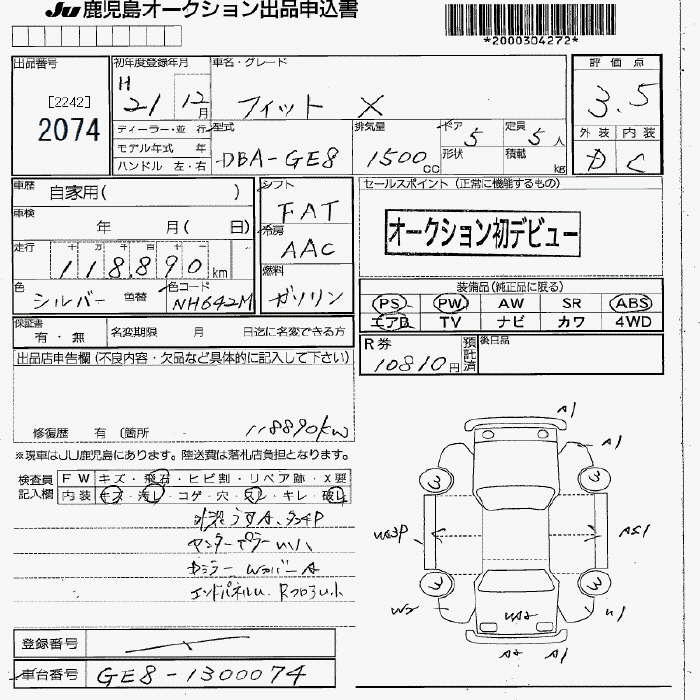 JU 鹿児島オークション出品申込書
*2000304272*
出品番号
[2242]
2074
初年度登録年月
H 21 12 月
車名・グレード
フィット X
評価点
3.5
外装 内装
D C
ディーラー・並 行
モデル年式 年
ハンドル 左・右
型式
DBA-GE8
排気量
1500 CC
ドア 5
形状
定員 5 人
積載 kg
車歴 自家用( )
車検 年 月( 日)
走行 十 万 千 百 十 一
118,890 km
色 シルバー 色替
色コード NH642M
シフト
FAT
冷房
AAC
燃料
ガソリン
セールスポイント (正常に機能するもの)
オークション初デビュー
装備品 (純正品に限る)
PS PW AW SR ABS
エアB TV ナビ カワ 4WD
保証書
有・無
名変期限 月 日迄に名変できる方
R券
10810円
預託済
後日品
出品店申告欄 (不良内容・欠品など具体的に記入して下さい)
修復歴 有 (箇所
118890km
※現車はJU鹿児島にあります。陸送費は落札店負担となります。
検査員記入欄
FW キズ・飛石・ヒビ割・リペア跡・X要
内装 キズ・汚レ・コゲ・穴・スレ・キレ・破レ
A1
A1
W3P
W2
U1
A2 A1
登録番号
車台番号 GE8-1300074